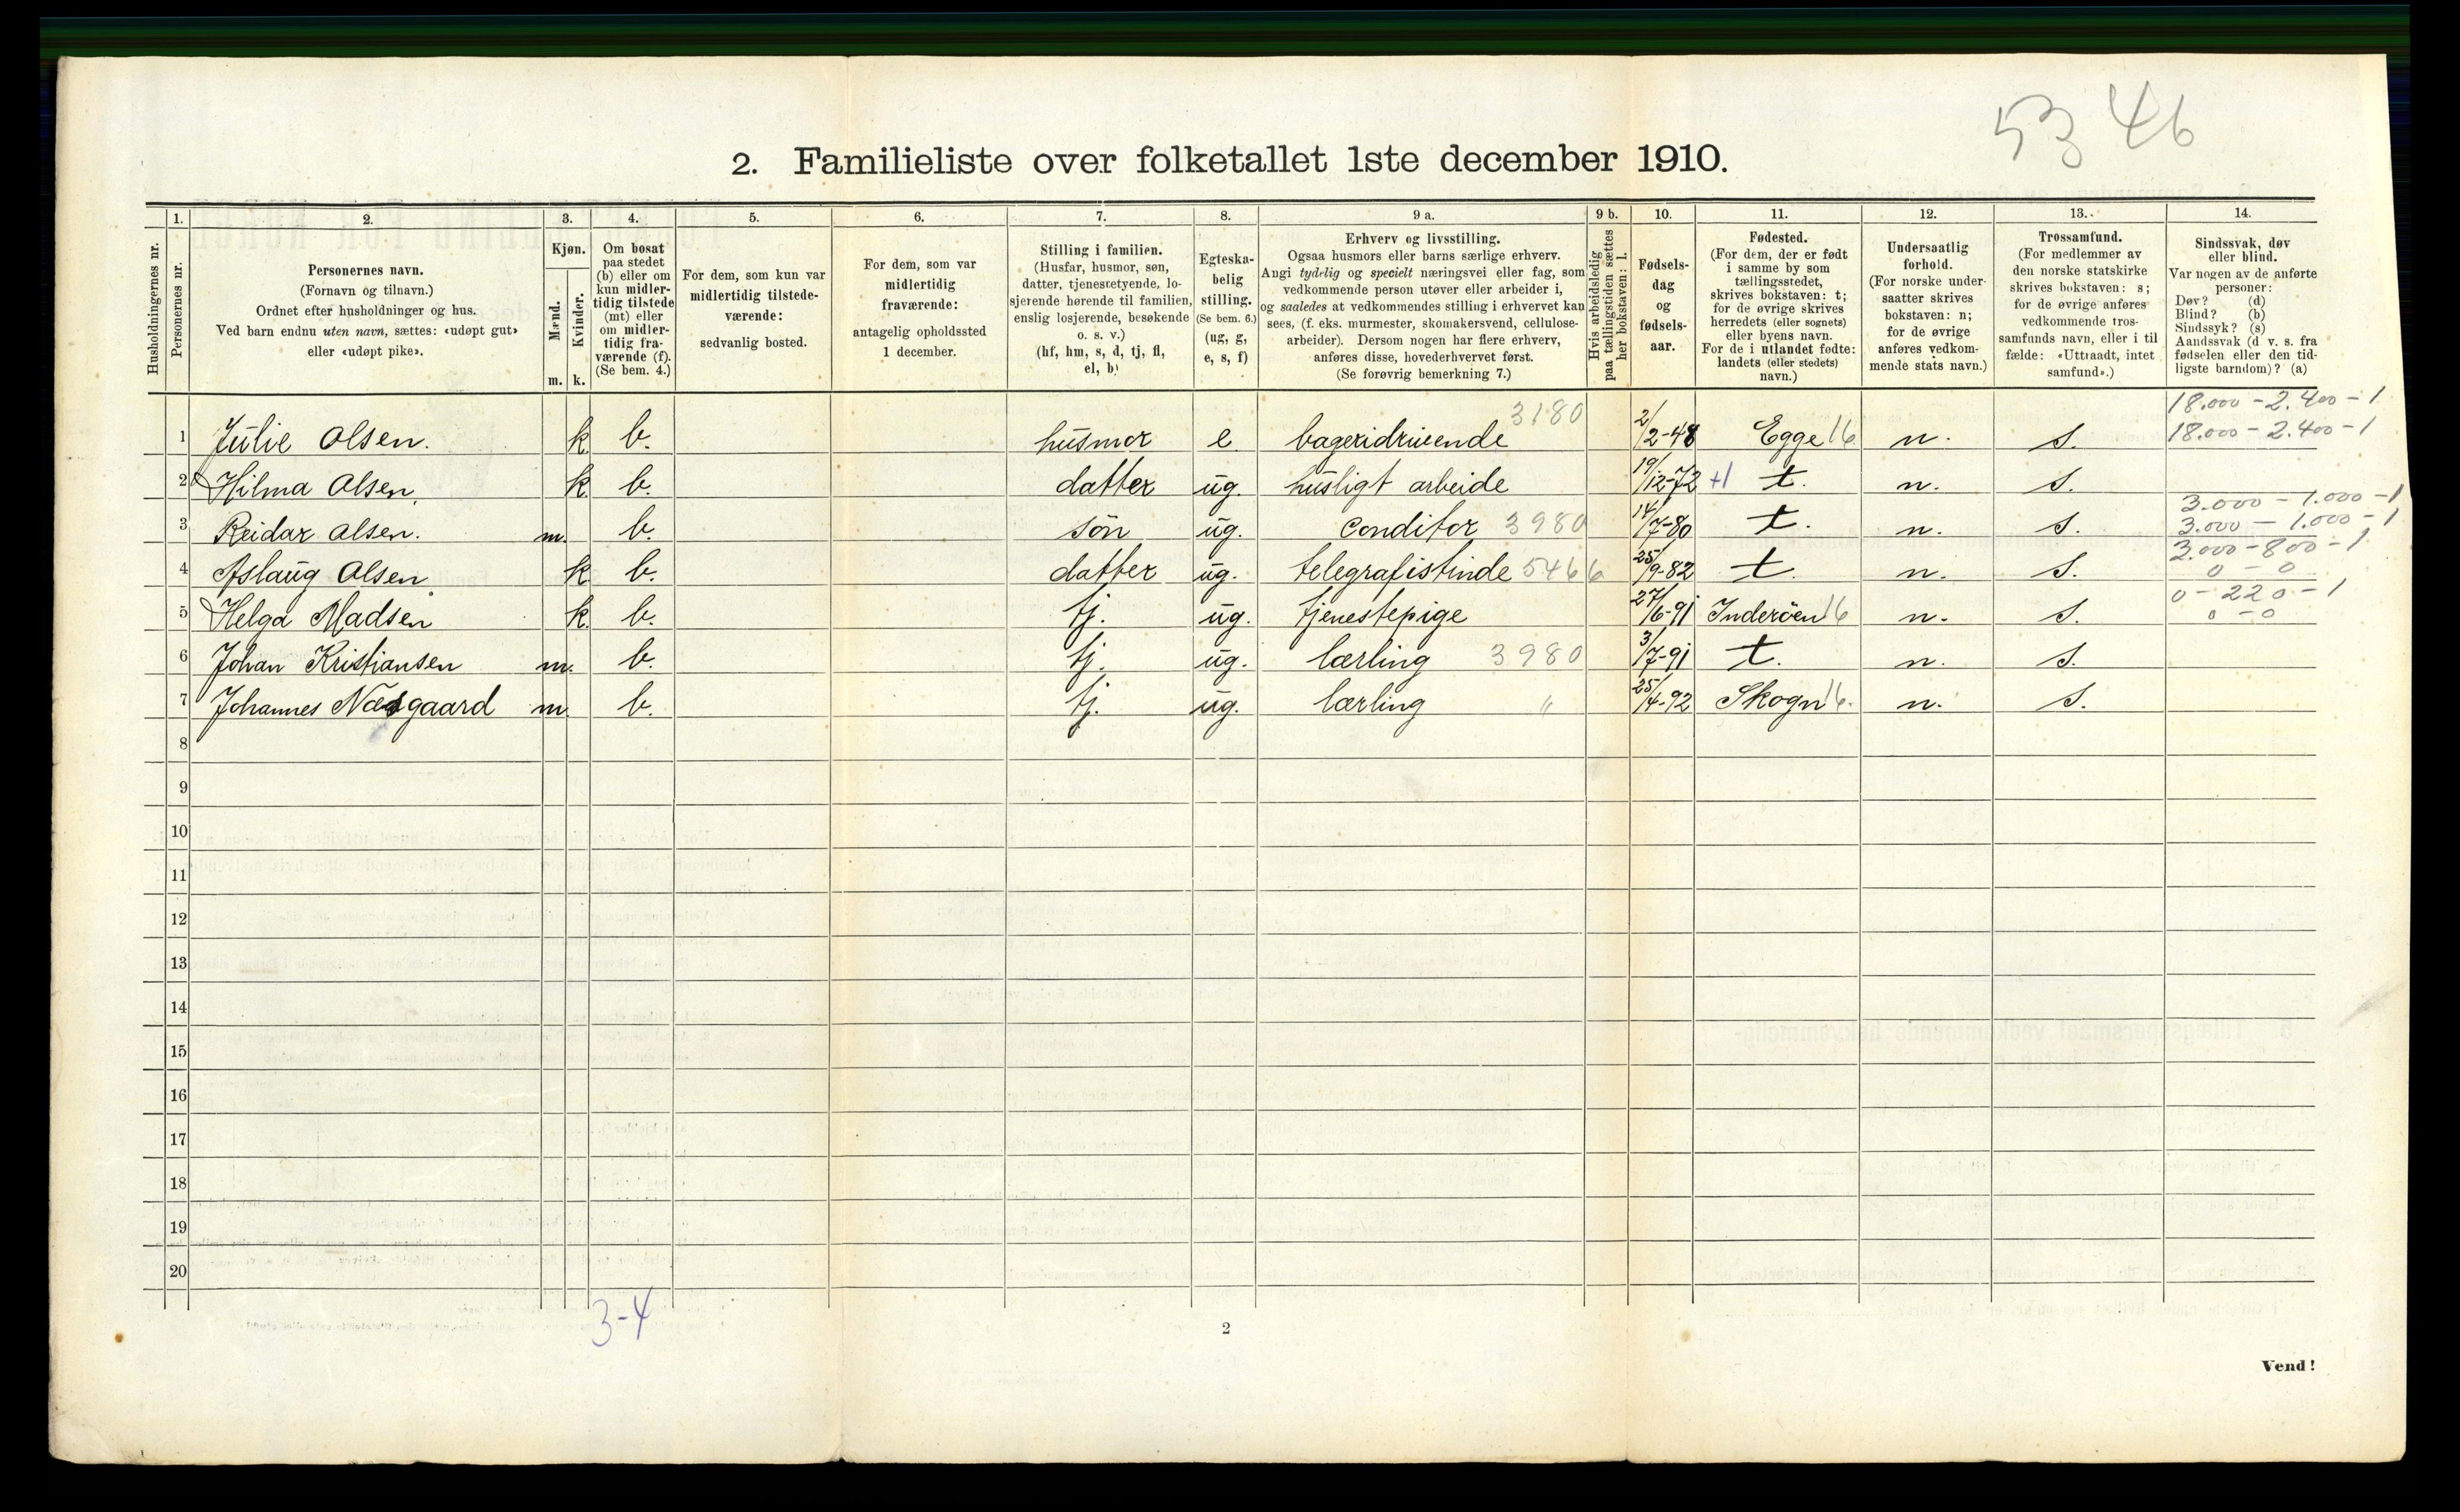 53 46
2. Familieliste over folketallet 1ste december 1910.
1. 2. 3. 4. 5. 6. 7. 8. 9 a. 9 b. 10. 11. 12. 13. 14.
Husholdningernes nr.
Personernes nr.
Personernes navn.
(Fornavn og tilnavn.)
Ordnet efter husholdninger og hus.
Ved barn endnu uten navn, sættes: «udøpt gut»
eller «udøpt pike».
Kjøn.
Mænd. Kvinder.
m. k.
Om bosat
paa stedet
(b) eller om
kun midler-
tidig tilstede
(mt) eller
om midler-
tidig fra-
værende (f).
(Se bem. 4.)
For dem, som kun var
midlertidig tilstede-
værende:
sedvanlig bosted.
For dem, som var
midlertidig
fraværende:
antagelig opholdssted
1 december.
Stilling i familien.
(Husfar, husmor, søn,
datter, tjenestetyende, lo-
sjerende hørende til familien,
enslig losjerende, besøkende
o. s. v.)
(hf, hm, s, d, tj, fl,
el, b)
Egteska-
belig
stilling.
(Se bem. 6.)
(ug, g,
e, s, f)
Erhverv og livsstilling.
Ogsaa husmors eller barns særlige erhverv.
Angi tydelig og specielt næringsvei eller fag, som
vedkommende person utøver eller arbeider i,
og saaledes at vedkommendes stilling i erhvervet kan
sees, (f. eks. murmester, skomakersvend, cellulose-
arbeider). Dersom nogen har flere erhverv,
anføres disse, hovederhvervet først.
(Se forøvrig bemerkning 7.)
Hvis arbeidsledig
paa tællingstiden sættes
her bokstaven: l.
Fødsels-
dag
og
fødsels-
aar.
Fødested.
(For dem, der er født
i samme by som
tællingsstedet,
skrives bokstaven: t;
for de øvrige skrives
herredets (eller sognets)
eller byens navn.
For de i utlandet fødte:
landets (eller stedets)
navn.)
Undersaatlig
forhold.
(For norske under-
saatter skrives
bokstaven: n;
for de øvrige
anføres vedkom-
mende stats navn.)
Trossamfund.
(For medlemmer av
den norske statskirke
skrives bokstaven: s;
for de øvrige anføres
vedkommende tros-
samfunds navn, eller i til
fælde: «Uttraadt, intet
samfund».)
Sindssvak, døv
eller blind.
Var nogen av de anførte
personer:
Døv? (d)
Blind? (b)
Sindssyk? (s)
Aandssvak (d. v. s. fra
fødselen eller den tid-
ligste barndom)? (a)
3180 18.000 - 2.400 - 1
1 Julie Olsen. k. b. husmor e bageridrivende 2/2-48 Egge 16 n. s. 18.000 - 2.400 - 1
2 Hilma Olsen. k. b. datter ug. husligt arbeide 19/12-72 +1 t. n. s.
3.000 - 1.000 - 1
3 Reidar Olsen. m. b. søn ug. conditor 3980 14/7-80 t. n. s. 3.000 - 1.000 - 1
2.000 - 800 - 1
4 Aslaug Olsen k. b. datter ug. telegrafistinde 5466 25/9-82 t. n. s. 0 - 0
0 - 220 - 1
5 Helga Madsen k. b. tj. ug. tjenestepige 27/6-91 Inderöen 16 n. s. 0 - 0
6 Johan Kristiansen m. b. tj. ug. lærling 3980 3/7-91 t. n. s.
7 Johannes Næsgaard m. b. tj. ug. lærling " 25/4-92 Skogn 16. n. s.
8
9
10
11
12
13
14
15
16
17
18
19
20
3-4
2
Vend!